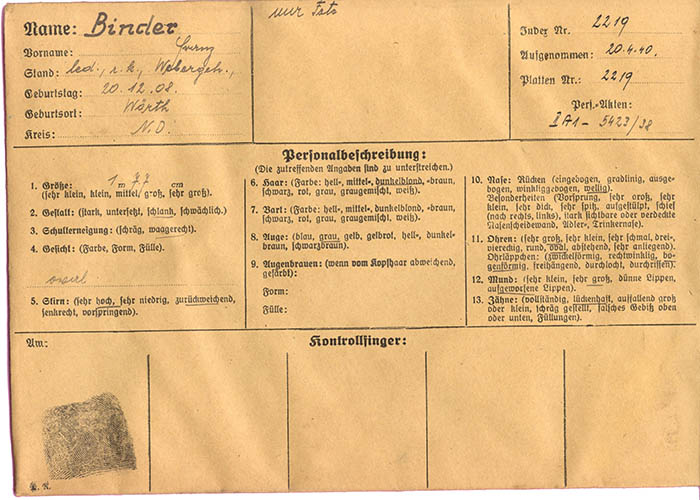 Name: Binder
Vorname: Franz
Stand: led., r.k., Webergeh.,
Geburtstag: 20.12.08.
Geburtsort: Wörth
Kreis: N.D.
nur Foto
Index Nr. 2219
Aufgenommen: 20.4.40.
Platten Nr.: 2219
Pers.-Akten:
II A1 - 5423/38
Personalbeschreibung:
(Die zutreffenden Angaben sind zu unterstreichen.)
1. Größe: 1 m 77 cm
(sehr klein, klein, mittel, groß, sehr groß).
2. Gestalt: (stark, untersetzt, schlank, schwächlich.)
3. Schulterneigung: (schräg, waagerecht.)
4. Gesicht: (Farbe, Form, Fülle).
oval
5. Stirn: (sehr hoch, sehr niedrig, zurückweichend,
senkrecht, vorspringend).
6. Haar: (Farbe: hell-, mittel-, dunkelblond, -braun,
schwarz, rot, grau, graugemischt, weiß).
7. Bart: (Farbe: hell-, mittel-, dunkelblond, -braun,
schwarz, rot, grau, graugemischt, weiß).
8. Auge: (blau, grau, gelb, gelbrot, hell-, dunkel-
braun, schwarzbraun).
9. Augenbrauen: (wenn vom Kopfhaar abweichend,
gefärbt):
Form:
Fülle:
10. Nase: Rücken (eingebogen, gradlinig, ausge-
bogen, winkliggebogen, wellig).
Besonderheiten (Vorsprung, sehr groß, sehr
klein, sehr dick, sehr spitz, aufgestülpt, schief
(nach rechts, links), stark sichtbare oder verdeckte
Nasenscheidewand, Adler-, Trinkernase).
11. Ohren: (sehr groß, sehr klein, sehr schmal, drei-,
viereckig, rund, oval, abstehend, sehr anliegend).
Ohrläppchen: (zwickelförmig, rechtwinklig, bo-
genförmig, freihängend, durchlocht, durchrissen).
12. Mund: (sehr klein, sehr groß, dünne Lippen,
aufgeworfene Lippen).
13. Zähne: (vollständig, lückenhaft, auffallend groß
oder klein, schräg gestellt, falsches Gebiß oben
oder unten, Füllungen).
Am:
Kontrollfinger: